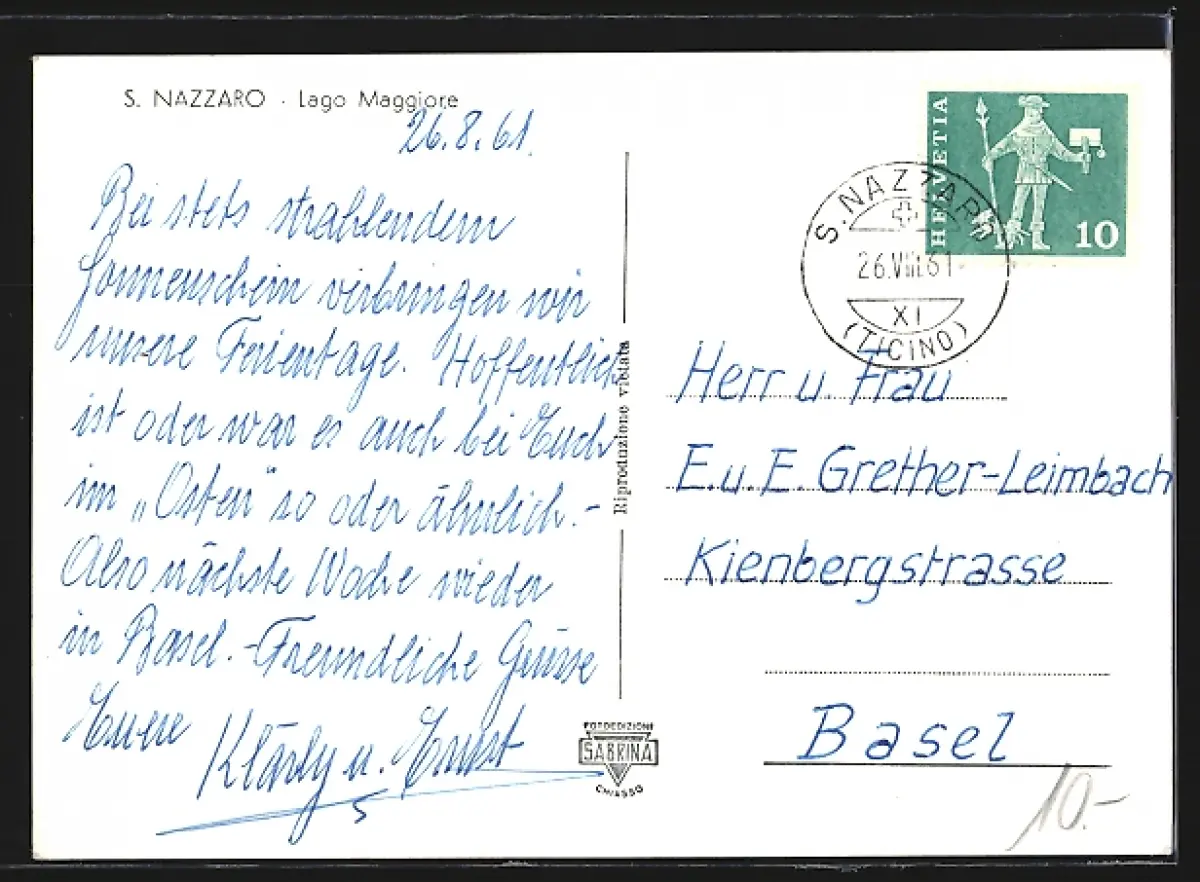 S. NAZZARO · Lago Maggiore
26.8.61.
Bei stets strahlendem
Sonnenschein verbringen wir
unsere Ferientage. Hoffentlich
ist oder war es auch bei Euch
im „Osten" so oder ähnlich.-
Also nächste Woche wieder
in Basel.- Freundliche Grüsse
Euere Klärly u. Ernst
Riproduzione vietata
FOTOEDIZIONI
SABRINA
CHIASSO
HELVETIA
10
S. NAZZARO
26.VIII.61
XI
(TICINO)
Herr u. Frau
E. u. E. Grether-Leimbach
Kienbergstrasse
Basel
10.-